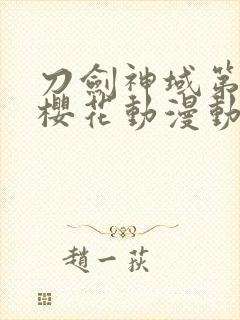 刀劍神域第
櫻花動漫動
趙一荻